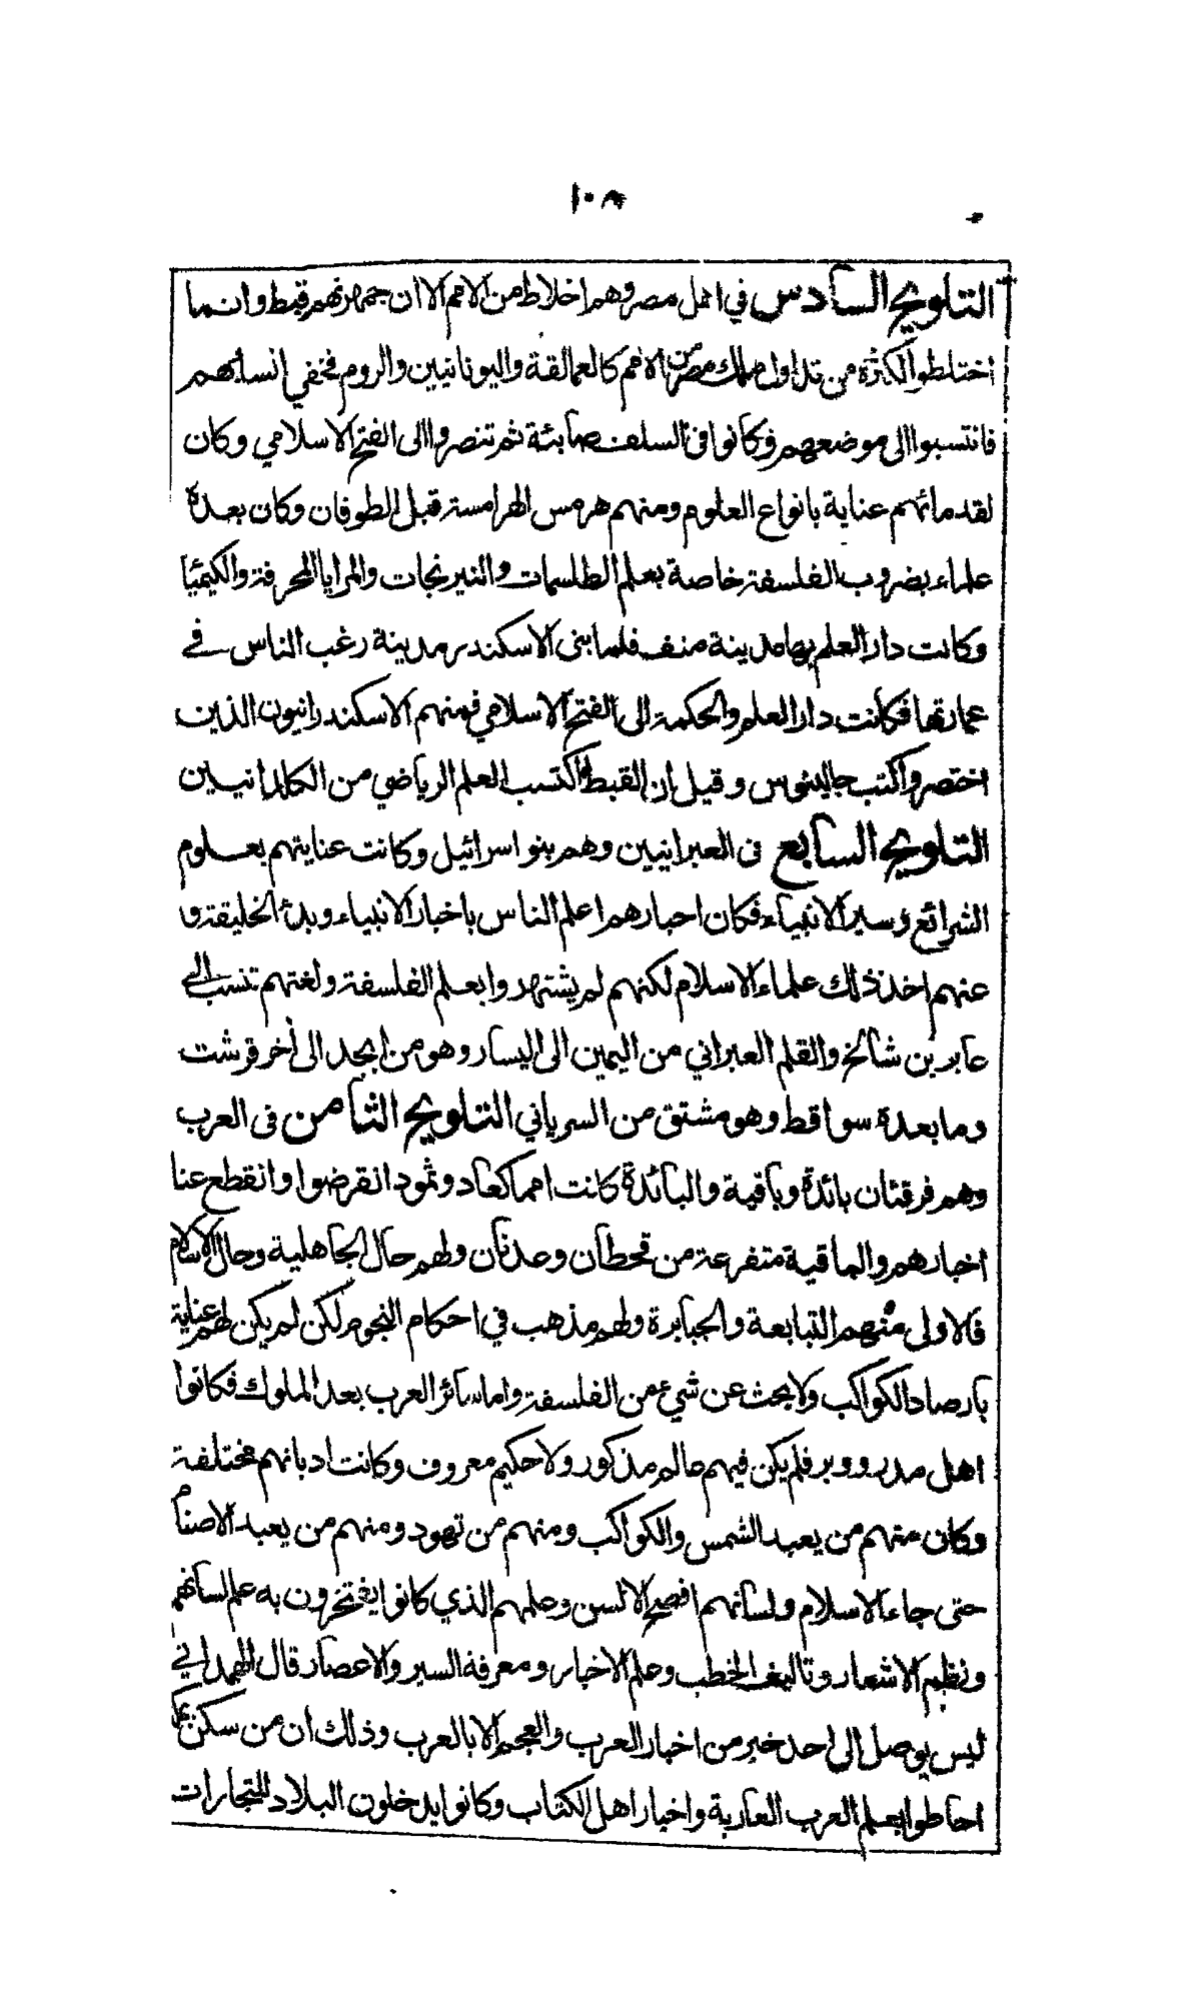 ١٠٨
التلويح السادس في اهل مصر وهم اخلاط من الامم الا ان جمهرتهم قبط وانما
اختلطوا لكثرة من تداول ملك مصر من الامم كالعمالقة واليونانيين والروم فخفي انسابهم
فانتسبوا الى موضعهم وكانوا في السلف صابئة ثم تنصروا الى الفتح الاسلامي وكان
لقدمائهم عناية بانواع العلوم ومنهم هرمس الهرامسة قبل الطوفان وكان بعده
علماء بضروب الفلسفة خاصة بعلم الطلسمات والنيرنجات والمرايا المحرقة والكيمئيا
وكانت دار العلم بها مدينة منف فلما بنى الاسكندر مدينة رغب الناس في
عمارتها فكانت دار العلم والحكمة الى الفتح الاسلامي فمنهم الاسكندرانيون الذين
اختصروا كتب جالينوس وقيل ان القبط اكتسب العلم الرياضي من الكلدانيين
التلويح السابع في العبرانيين وهم بنو اسرائيل وكانت عنايتهم بعلوم
الشرائع وسير الانبياء فكان احبارهم اعلم الناس باخبار الانبياء وبدء الخليقة و
عنهم اخذ ذلك علماء الاسلام لكنهم لم يشتهروا بعلم الفلسفة ولغتهم تنسب الى
عابر بن شالخ والقلم العبراني من اليمين الى اليسار وهو من ابجد الى أخر قرشت
وما بعده سواقط وهو مشتق من السرياني التلويح الثامن في العرب
وهم فرقتان بائدة وباقية والبائدة كانت امما كعاد وثمود انقرضوا وانقطع عنا
اخبارهم والباقية متفرعة من قحطان وعدنان ولهم حال الجاهلية وحال الاسلام
فالاولى منهم التبابعة والجبابرة ولهم مذهب في احكام النجوم لكن لم يكن لهم عناية
بارصاد الكواكب ولا بحث عن شيء من الفلسفة واما سائر العرب بعد الملوك فكانوا
اهل مدر ووبر فلم يكن فيهم عالم مذكور ولا حكيم معروف وكانت اديانهم مختلفة
وكان منهم من يعبد الشمس والكواكب ومنهم من تهود ومنهم من يعبد الاصنام
حتى جاء الاسلام ولسانهم افصح الالسن وعلمهم الذي كانوا يفتخرون به علم لسانهم
ونظم الاشعار وتاليف الخطب وعلم الاخبار ومعرفة السير والاعصار قال الهمداني
ليس يوصل الى احد خبر من اخبار العرب والعجم الا بالعرب وذلك ان من سكن
احاطوا بعلم العرب العاربة واخبار اهل الكتاب وكانوا يدخلون البلاد للتجارات